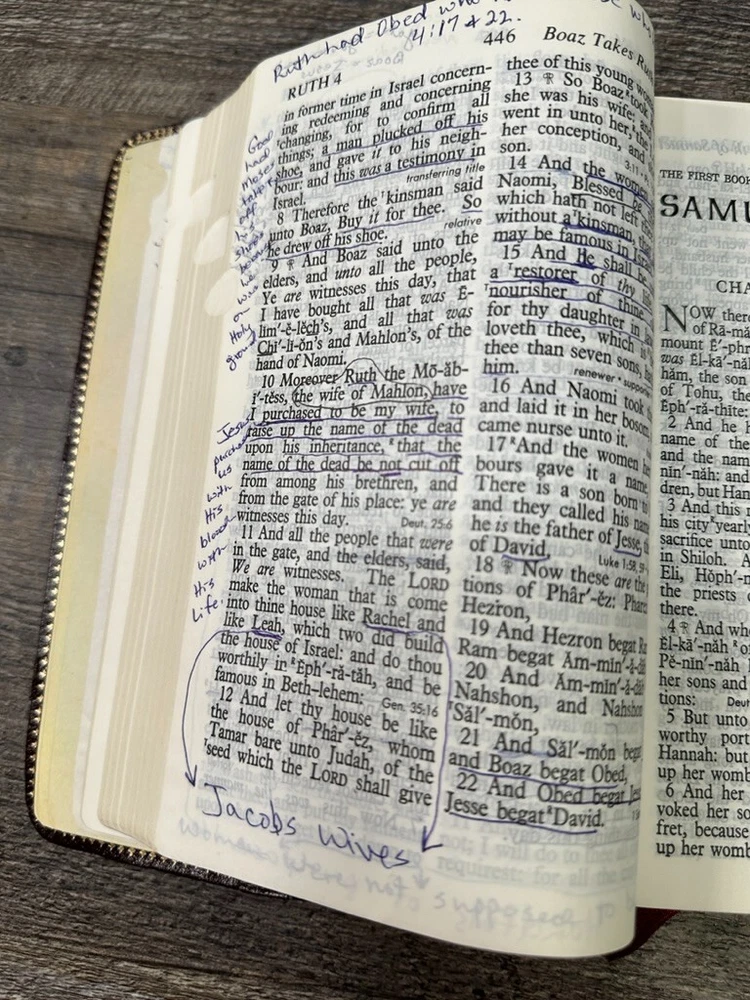 Ruth had Obed
4:17 & 22.
RUTH 4
446
Boaz Takes
in former time in Israel concern-
ing redeeming and concerning
changing, for to confirm all
things; a man plucked off his
shoe, and gave it to his neigh-
bour: and this was a testimony in
Israel.
transferring title
8 Therefore the kinsman said
unto Boaz, Buy it for thee. So
he drew off his shoe.
relative
9 And Boaz said unto the
elders, and unto all the people,
Ye are witnesses this day, that
I have bought all that was Ē-
lĭm'-ĕ-lĕch's, and all that was
Chĭ'-lĭ-ŏn's and Mahlon's, of the
hand of Naomi.
10 Moreover Ruth the Mō-ăb-
i'-tĕss, the wife of Mahlon, have
I purchased to be my wife, to
raise up the name of the dead
upon his inheritance, that the
name of the dead be not cut off
from among his brethren, and
from the gate of his place: ye are
witnesses this day.
Deut. 25:6
11 And all the people that were
in the gate, and the elders, said,
We are witnesses. The LORD
make the woman that is come
into thine house like Rachel and
like Leah, which two did build
the house of Israel: and do thou
worthily in Ĕph'-ră-tăh, and be
famous in Beth-lehem:
Gen. 35:16
12 And let thy house be like
the house of Phâr'-ĕz, whom
Tamar bare unto Judah, of the
seed which the LORD shall give
God
had
Moses
take
off
his
shoes
he
was
on
Holy
ground
Jesus
us
with
His
blood
with
His
Life.
Jacobs Wives
thee of this young
13 So Boaz took
she was his wife: and
went in unto her, the
her conception, and
son.
14 And the women
Naomi, Blessed be
which hath not left
without a kinsman,
may be famous in
15 And He shall be
a restorer of thy
nourisher of thine
for thy daughter in
loveth thee, which is
thee than seven sons,
him.
renewer
16 And Naomi took
and laid it in her
came nurse unto it.
17 And the women
bours gave it a name,
There is a son born
and they called his
he is the father of Jesse,
of David.
Luke 1:58, 59
18 Now these are the
tions of Phâr'-ĕz:
Hezron,
19 And Hezron begat
Ram begat Ăm-mĭn'-ă-
20 And Ăm-mĭn'-ă-
Nahshon, and Nahshon
Săl'-mŏn,
21 And Săl'-mŏn
and Boaz begat Obed,
22 And Obed begat
Jesse begat David.
THE FIRST BOOK
NOW there
of Rā-mă
mount Ē'-phr
was Ĕl-kā'-năh
hăm, the son
of Tohu, the
Ĕph'-ră-thīte:
2 And he
name of the
and the name
nĭn'-năh: and
dren, but Han
3 And this
his city yearly
sacrifice unto
in Shiloh.
Eli, Hŏph'-n
the priests
there.
4 And wh
Ĕl-kā'-năh
Pĕ-nĭn'-năh
her sons and
tions:
5 But unto
worthy port
Hannah: but
up her womb
6 And her
voked her so
fret, because
up her womb